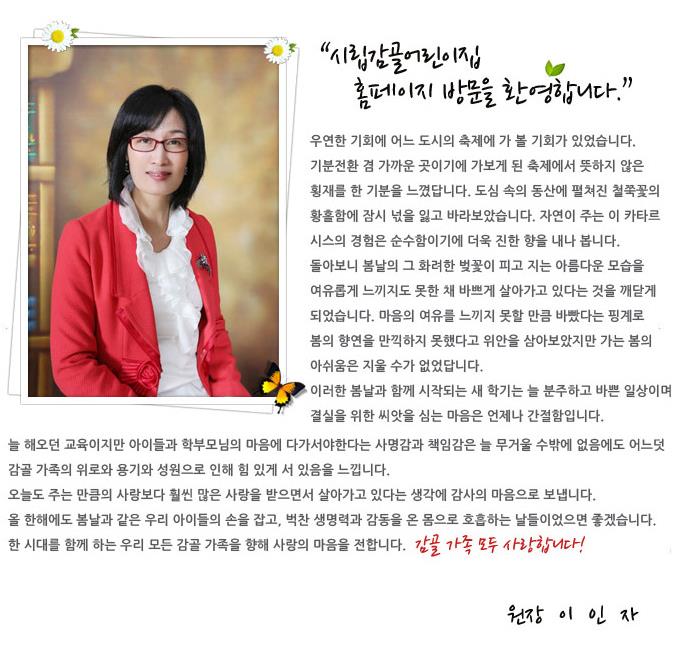 “시립감골어린이집
홈페이지 방문을 환영합니다.”
우연한 기회에 어느 도시의 축제에 가 볼 기회가 있었습니다.
기분전환 겸 가까운 곳이기에 가보게 된 축제에서 뜻하지 않은
횡재를 한 기분을 느꼈답니다. 도심 속의 동산에 펼쳐진 철쭉꽃의
황홀함에 잠시 넋을 잃고 바라보았습니다. 자연이 주는 이 카타르
시스의 경험은 순수함이기에 더욱 진한 향을 내나 봅니다.
돌아보니 봄날의 그 화려한 벚꽃이 피고 지는 아름다운 모습을
여유롭게 느끼지도 못한 채 바쁘게 살아가고 있다는 것을 깨닫게
되었습니다. 마음의 여유를 느끼지 못할 만큼 바빴다는 핑계로
봄의 향연을 만끽하지 못했다고 위안을 삼아보았지만 가는 봄의
아쉬움은 지울 수가 없었답니다.
이러한 봄날과 함께 시작되는 새 학기는 늘 분주하고 바쁜 일상이며
결실을 위한 씨앗을 심는 마음은 언제나 간절함입니다.
늘 해오던 교육이지만 아이들과 학부모님의 마음에 다가서야한다는 사명감과 책임감은 늘 무거울 수밖에 없음에도 어느덧
감골 가족의 위로와 용기와 성원으로 인해 힘 있게 서 있음을 느낍니다.
오늘도 주는 만큼의 사랑보다 훨씬 많은 사랑을 받으면서 살아가고 있다는 생각에 감사의 마음으로 보냅니다.
올 한해에도 봄날과 같은 우리 아이들의 손을 잡고, 벅찬 생명력과 감동을 온 몸으로 호흡하는 날들이었으면 좋겠습니다.
한 시대를 함께 하는 우리 모든 감골 가족을 향해 사랑의 마음을 전합니다. 감골 가족 모두 사랑합니다!
원장 이 인 자